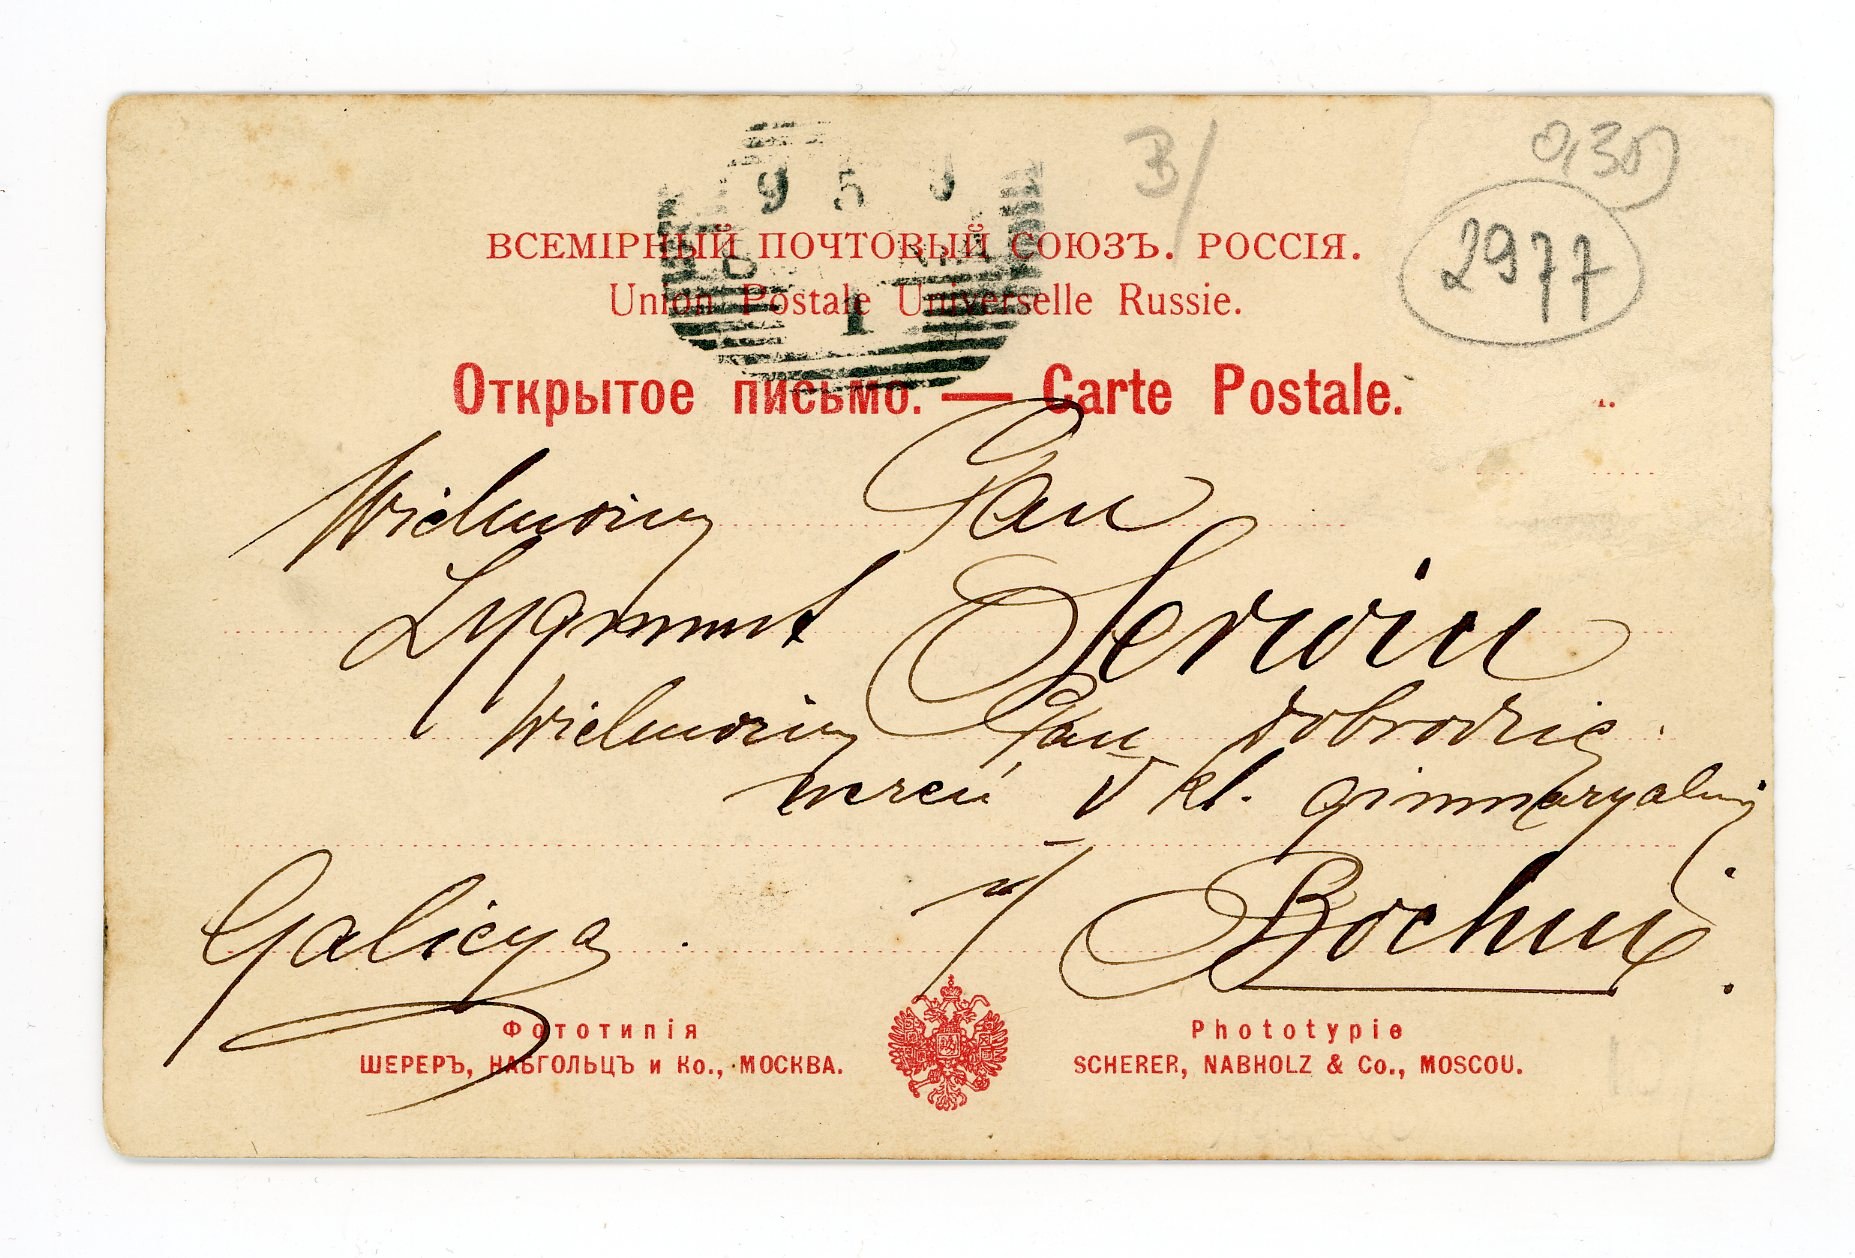 B/
0,30
2977
9 5 0
ВСЕМІРНЫЙ ПОЧТОВЫЙ СОЮЗЪ. РОССІЯ.
Union Postale Universelle Russie.
1
Открытое письмо. — Carte Postale.
Wielmożny Pan
Zygmunt Serwin
Wielmożny Pan dobrodzie
uczeń V kl. gimnazyalny
w/ Bochni.
Galicya.
Фототипія
ШЕРЕРЪ, НАБГОЛЬЦЪ и Ко., МОСКВА.
Phototypie
SCHERER, NABHOLZ & Co., MOSCOU.